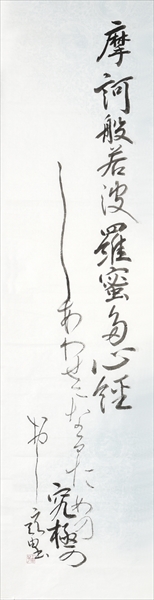 摩訶般若波羅蜜多心經
しあわせになるための
究極の